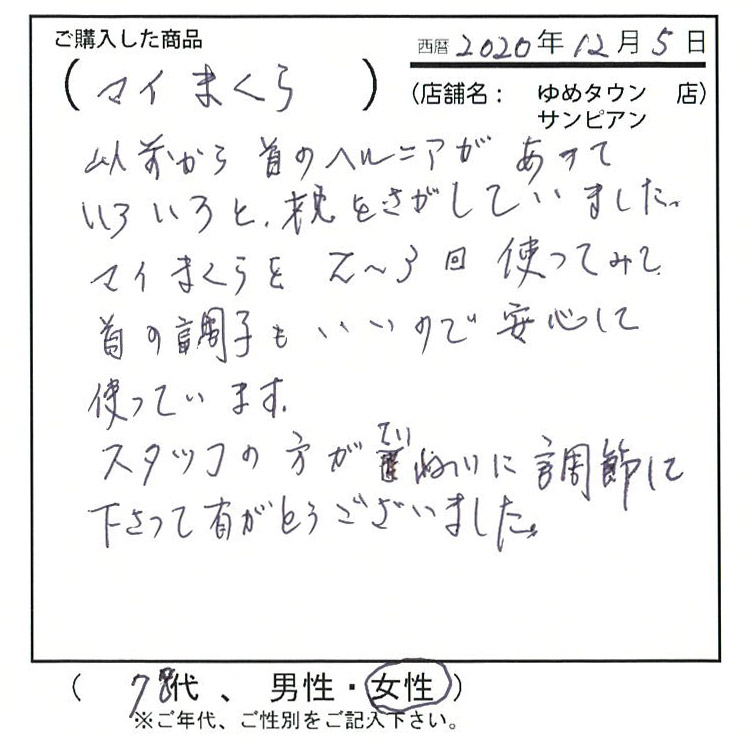 ご購入した商品
西暦 2020年 12月 5日
( マイまくら )
(店舗名： ゆめタウン 店)
サンピアン
以前から首のヘルニアがあって
いろいろと、枕をさがしていました。
マイまくらを 2〜3回 使ってみて
首の調子もいいので 安心して
使っています。
スタッフの方が ていねいに 調節して
下さって有がとうございました。
( 78代、 男性・女性 )
※ご年代、ご性別をご記入下さい。